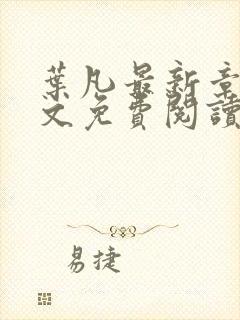 葉凡最新章
文免費閱讀
易捷